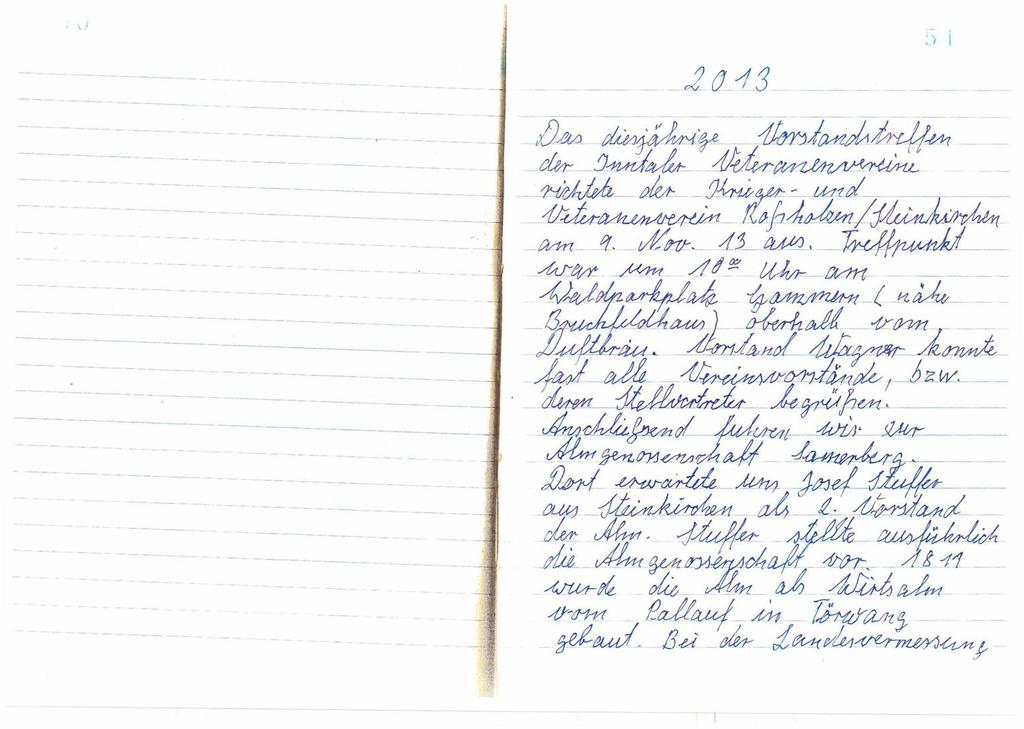 51
2013
Das diesjährige Vorstandstreffen
der Inntaler Veteranenvereine
richtete der Krieger- und
Veteranenverein Roßholzen/Steinkirchen
am 9. Nov. 13 aus. Treffpunkt
war um 10⁰⁰ Uhr am
Waldparkplatz Gammern (nähe
Bruchfeldhaus) oberhalb vom
Duftbräu. Vorstand Wagner konnte
fast alle Vereinsvorstände, bzw.
deren Stellvertreter begrüßen.
Anschließend fuhren wir zur
Almgenossenschaft Samerberg.
Dort erwartete uns Josef Stuffer
aus Steinkirchen als 2. Vorstand
der Alm. Stuffer stellte ausführlich
die Almgenossenschaft vor. 1811
wurde die Alm als Wirtsalm
vom Pallauf in Törwang
gebaut. Bei der Landesvermessung